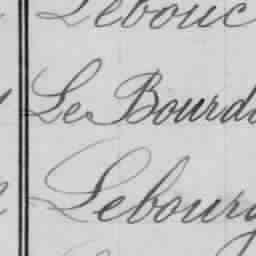 Lebouc
Le Bourd
Lebourg